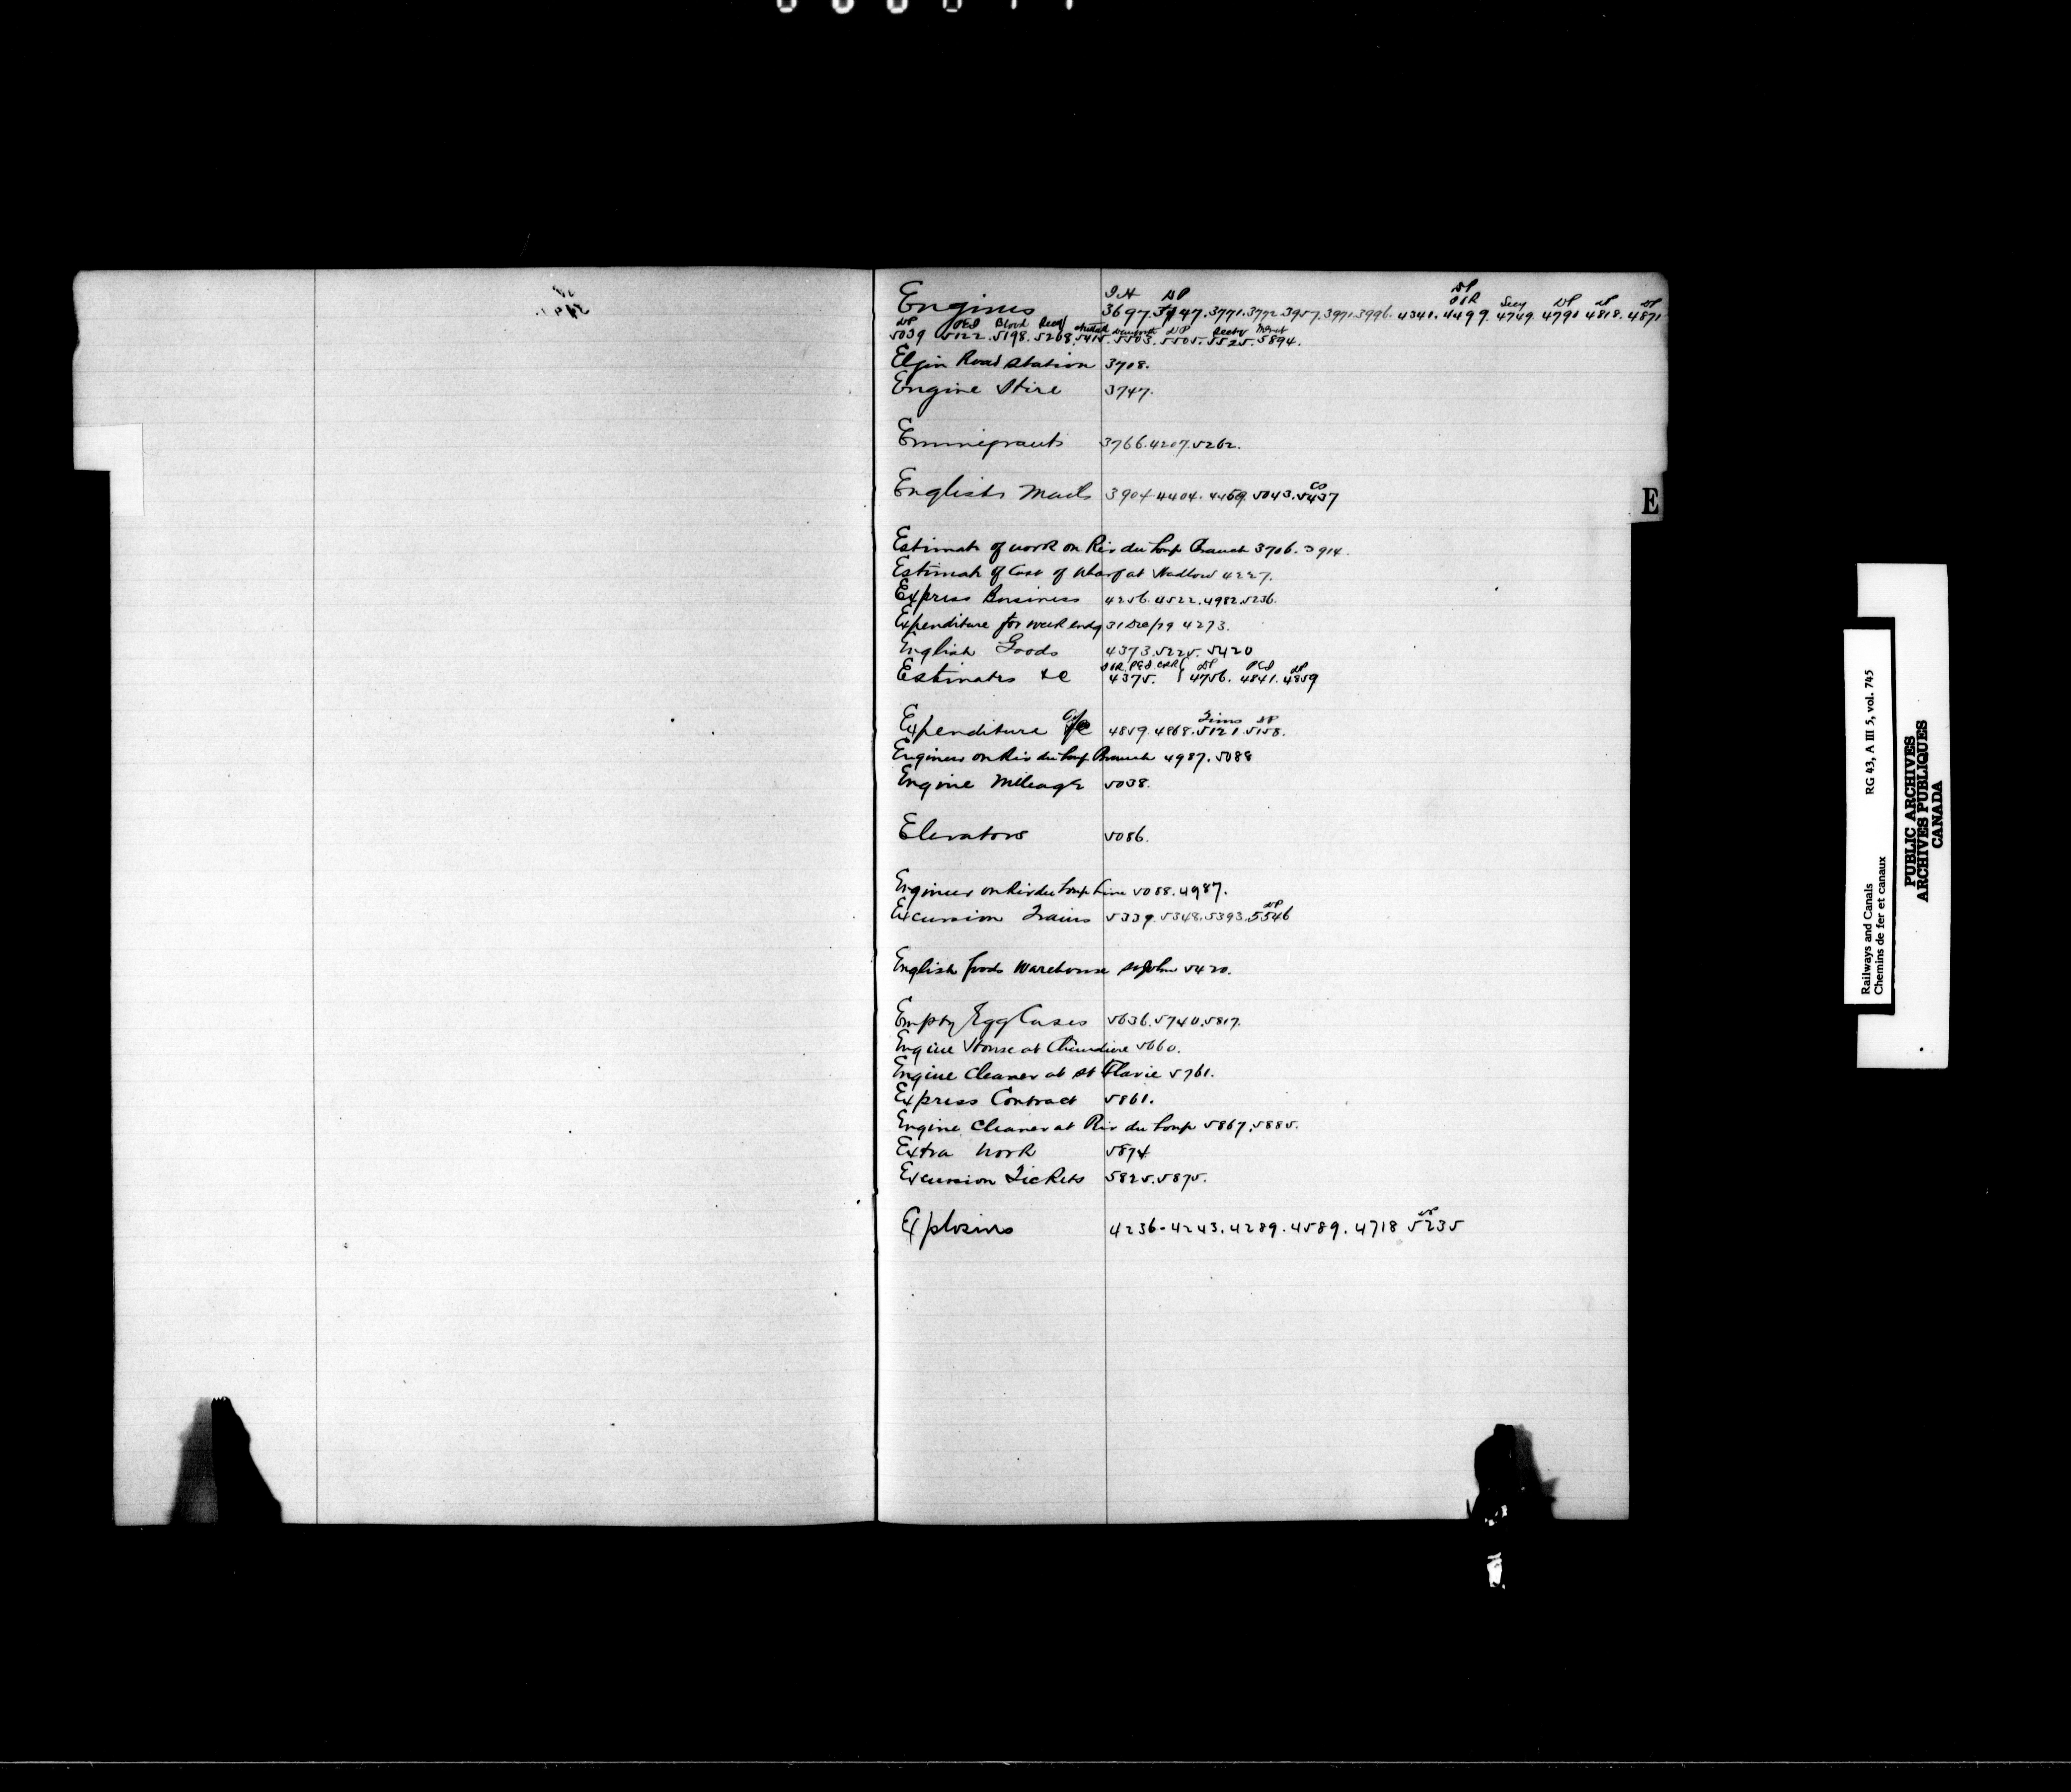 Engines 3697. 3747. 3771. 3772. 3957. 3971. 3996. 4341. 4499. 4749. 4790. 4818. 4871
5039 5122. 5198. 5208. 5415. 5503. 5505. 5525. 5894.
Elgin Road Station 3708.
Engine Hire 3747.
Emmigrants 3766. 4207. 5262.
English Mails 3904. 4404. 4459. 5043. 5437
Estimate of work on Riv du Loup Branch 3706. 3914.
Estimate of Cost of Wharf at Hadlow 4227.
Express Business 4256. 4522. 4982. 5236.
Expenditure for week endg 31 Dec/79 4273.
English Goods 4373. 5225. 5420
Estimates &c 4375. 4756. 4841. 4859
Expenditure 4859. 4868. 5121. 5158.
Engineer on Riv du Loup Branch 4987. 5088
Engine Mileage 5038.
Elevators 5086.
Engineer on Riv du Loup Line 5088. 4987.
Excursion Trains 5339. 5348. 5393. 5546
English Goods Warehouse St John 5420.
Empty Egg Cases 5636. 5740. 5817.
Engine House at Chaudiere 5660.
Engine Cleaner at St Flavie 5761.
Express Contract 5861.
Engine Cleaner at Riv du Loup 5867. 5885.
Extra Work 5874
Excursion Tickets 5825. 5875.
Explosives 4236. 4243. 4289. 4589. 4718 5235
E
Railways and Canals RG 43, A III 5, vol. 745
Chemins de fer et canaux
PUBLIC ARCHIVES
ARCHIVES PUBLIQUES
CANADA